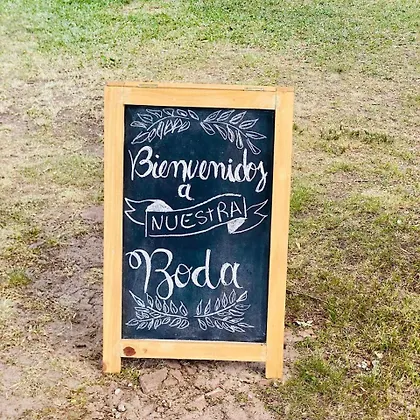 Bienvenidos
a
NUEStRA
Boda